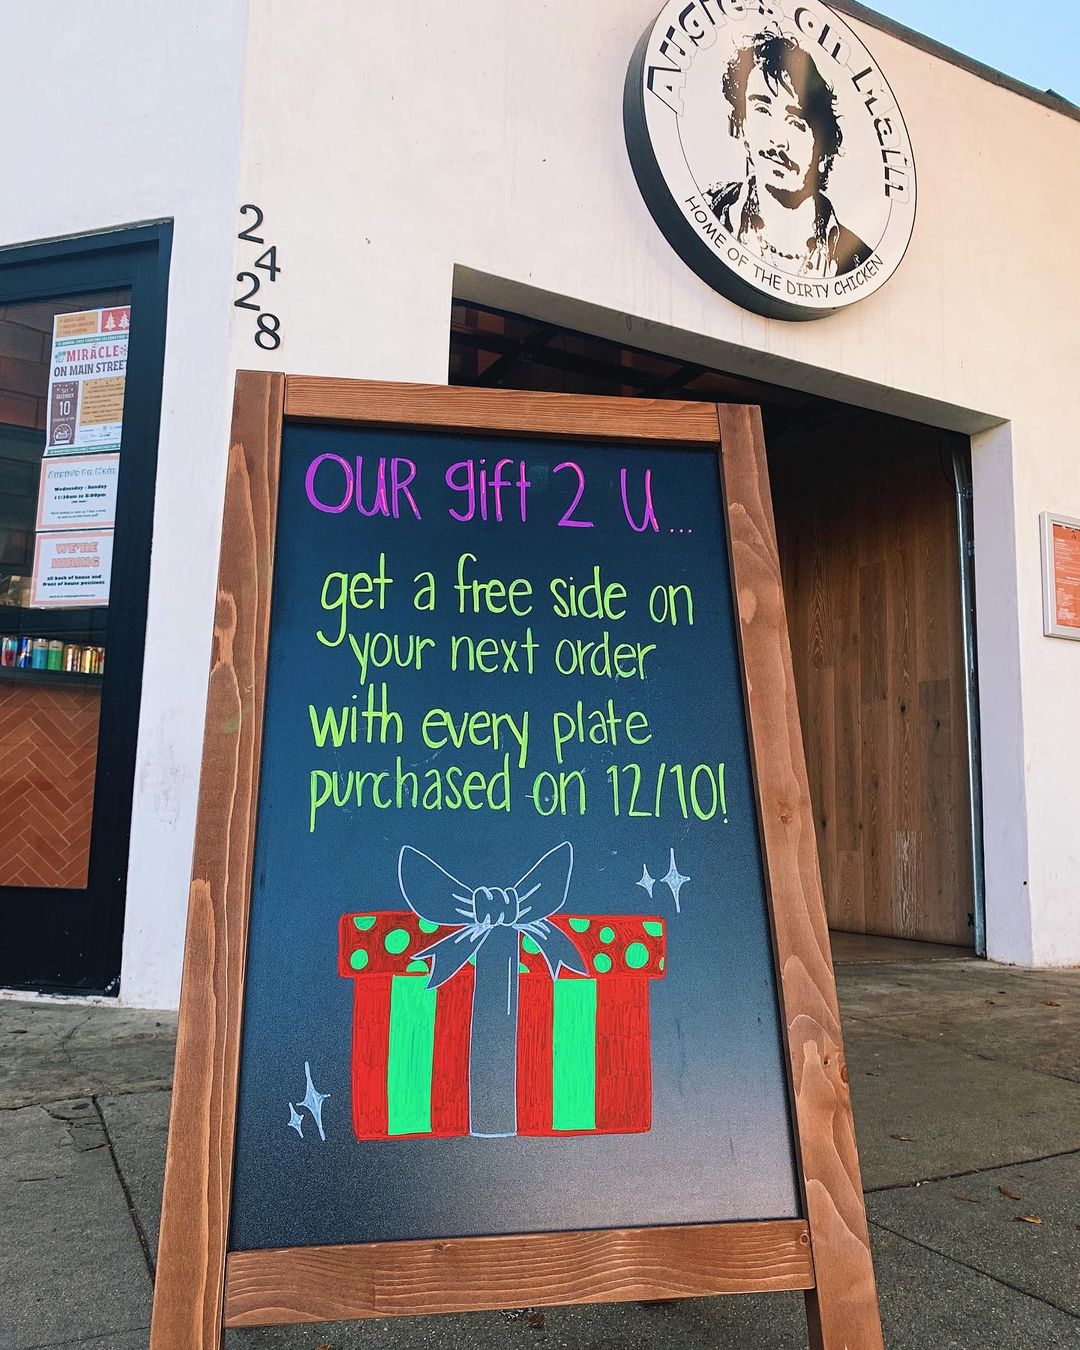 Augie's on Main
HOME OF THE DIRTY CHICKEN
2
4
2
8
MIRACLE
ON MAIN STREET
10
Augie's On Main
Wednesday - Sunday
11:30am to 8:00pm
WE'RE
HIRING
all back of house and
front of house positions
OUR gift 2 U...
get a free side on
your next order
with every plate
purchased on 12/10!